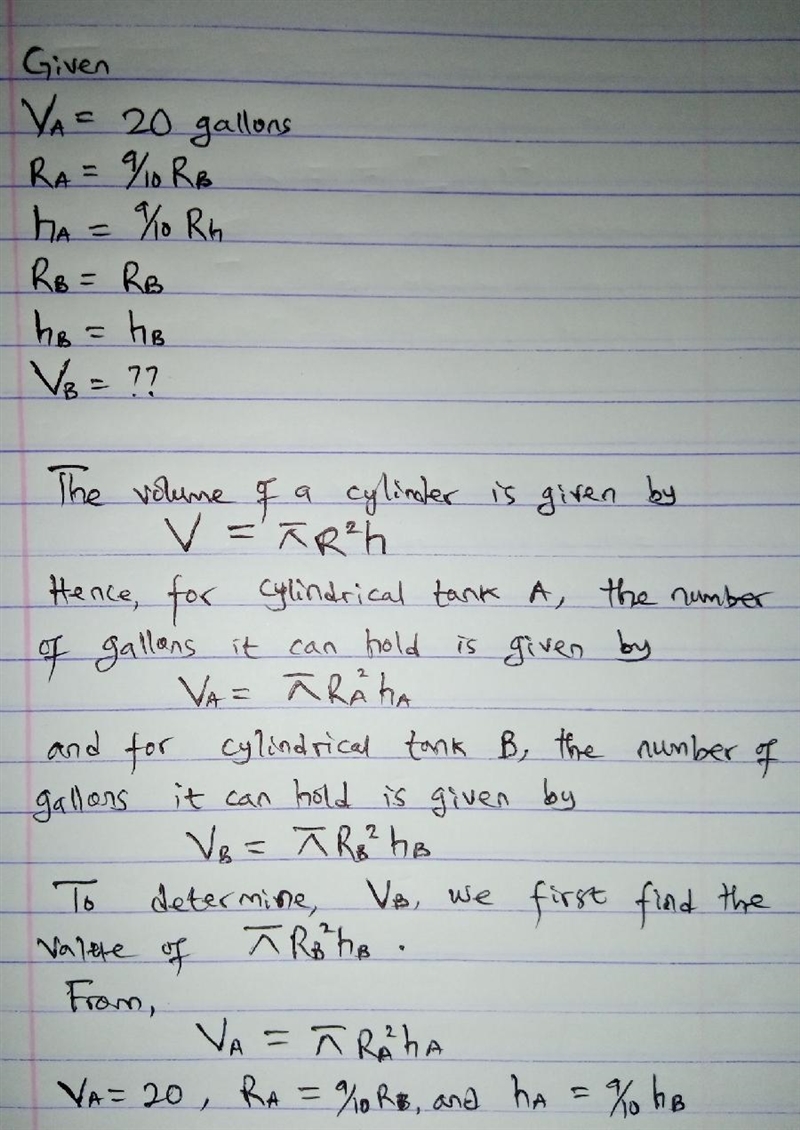 Given
V_A = 20 gallons
R_A = 9/10 R_B
h_A = 9/10 R_h
R_B = R_B
h_B = h_B
V_B = ??
The volume of a cylinder is given by
V = πR²h
Hence, for cylindrical tank A, the number
of gallons it can hold is given by
V_A = πR_A²h_A
and for cylindrical tank B, the number of
gallons it can hold is given by
V_B = πR_B²h_B
To determine, V_B, we first find the
value of πR_B²h_B.
From,
V_A = πR_A²h_A
V_A = 20, R_A = 9/10 R_B, and h_A = 9/10 h_B